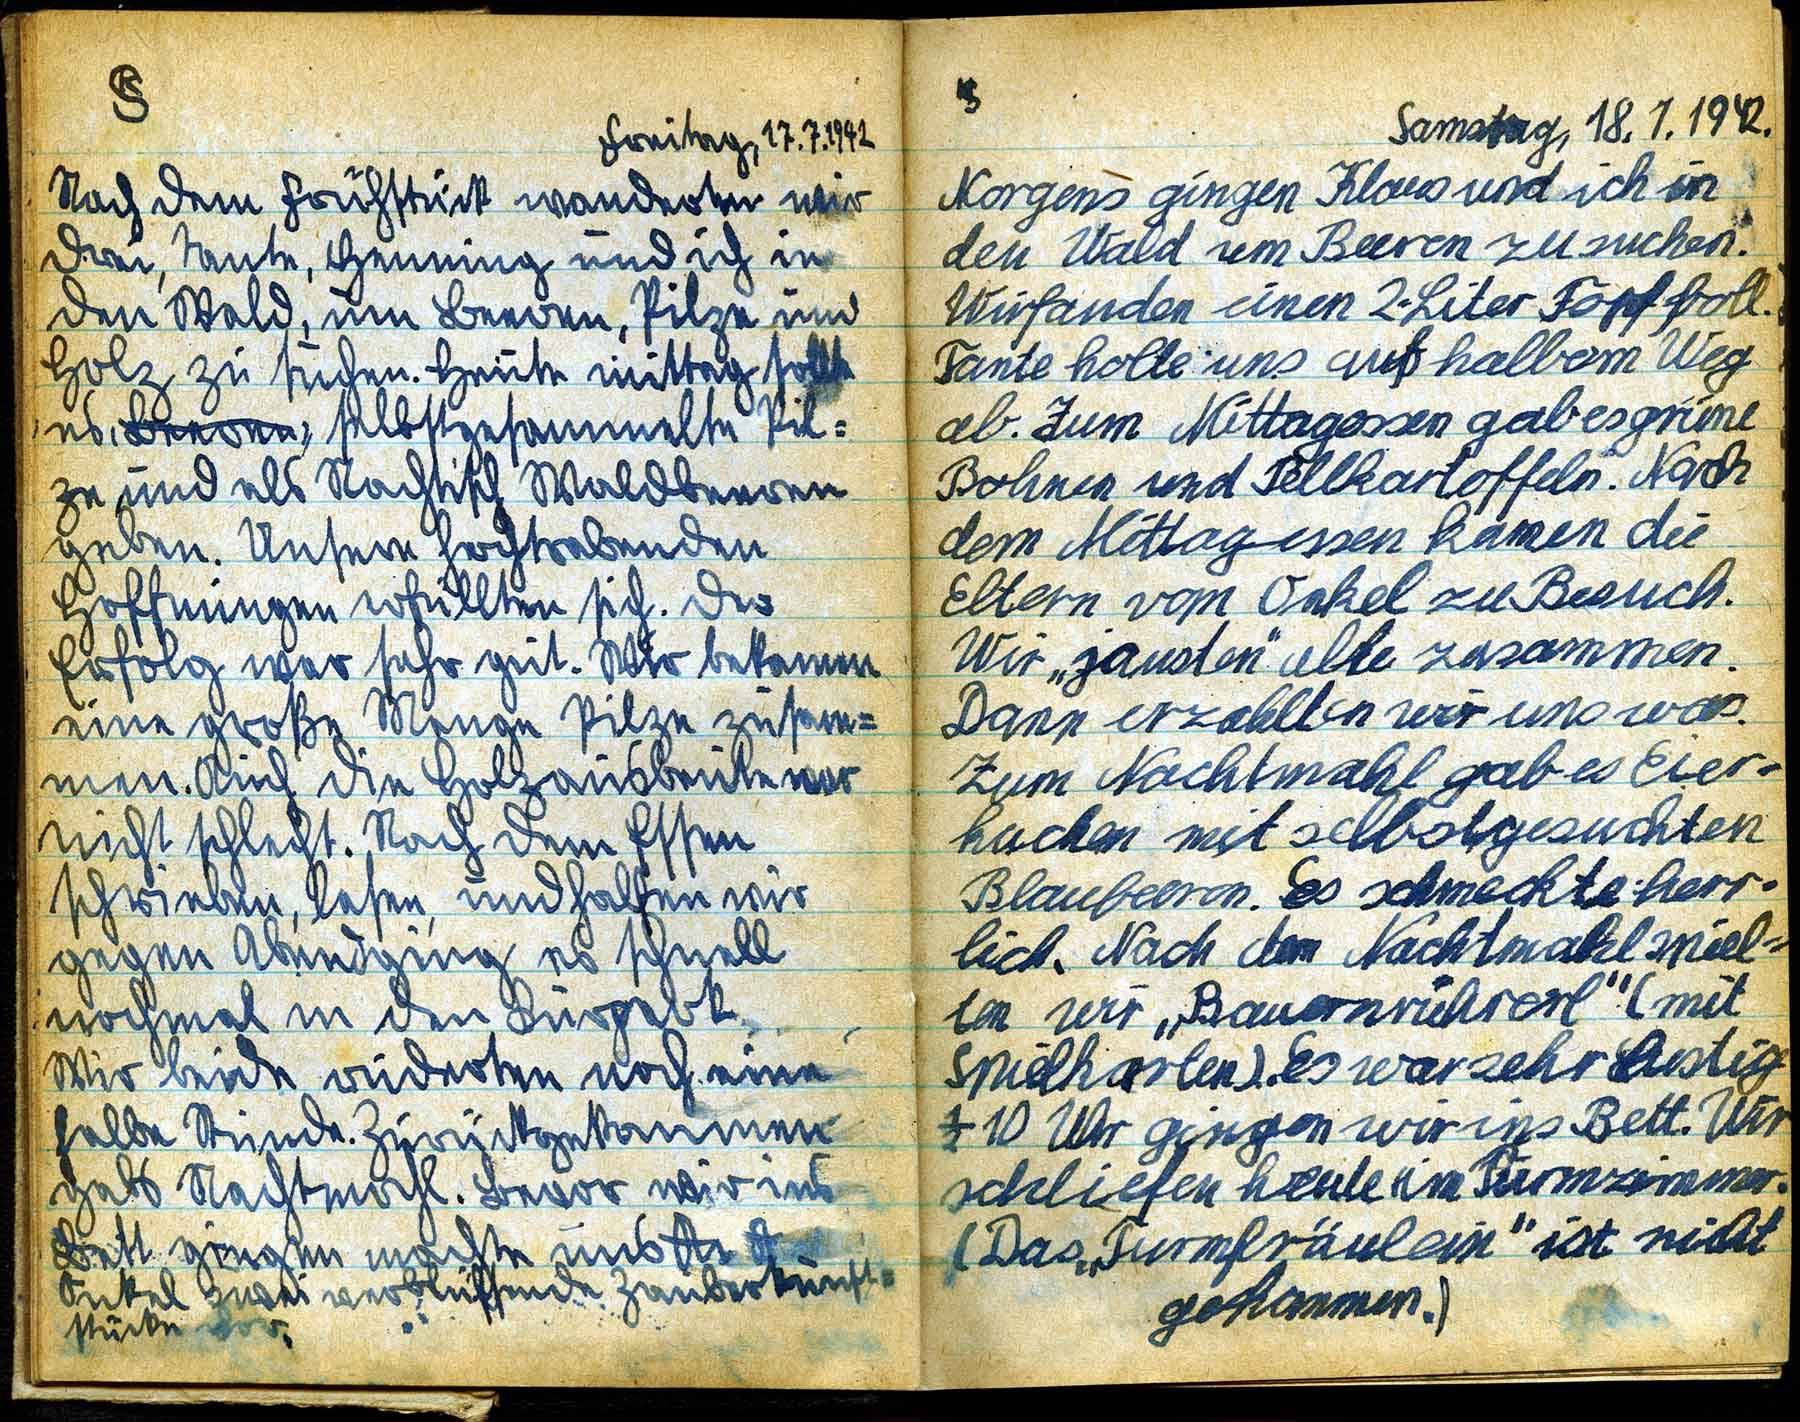 Freitag, 17.7.1942
Nach dem Frühstück wanderten wir
drei, Tante, Henning und ich in
den Wald, um Beeren, Pilze und
Holz zu suchen. Heute mittag sollte
es, Beeren, selbstgesammelte Pil=
ze und als Nachtisch Waldbeeren
geben. Unsere hochtrabenden
Hoffnungen erfüllten sich. Der
Erfolg war sehr gut. Wir bekamen
eine große Menge Pilze zusam=
men. Auch die Holzausbeute war
nicht schlecht. Nach dem Essen
schrieben, lasen, und halfen wir
gegen Abend ging es schnell
nochmal in den
Wir beide ruderten noch eine
halbe Stunde. Zurückgekommen
gabs Nachtmahl. Bevor wir ins
Bett gingen machte uns
Onkel zwei verblüffende Zauberkunst=
stücke vor.
Samstag, 18.7.1942.
Morgens gingen Klaus und ich in
den Wald um Beeren zu suchen.
Wir fanden einen 2-Liter Topf voll.
Tante holte uns auf halbem Weg
ab. Zum Mittagessen gab es grüne
Bohnen und Pellkartoffeln. Nach
dem Mittagessen kamen die
Eltern vom Onkel zu Besuch.
Wir „jausten" alle zusammen.
Dann erzahlten wir uns was.
Zum Nachtmahl gab es Eier-
kuchen mit selbstgesuchten
Blaubeeren. Es schmeckte herr-
lich. Nach dem Nachtmahl spiel=
ten wir (mit
Spielkarten). Es war sehr lustig
½ 10 Uhr gingen wir ins Bett. Wir
schliefen heute im Turmzimmer.
(Das „Turmfräulein" ist nicht
gekommen.)